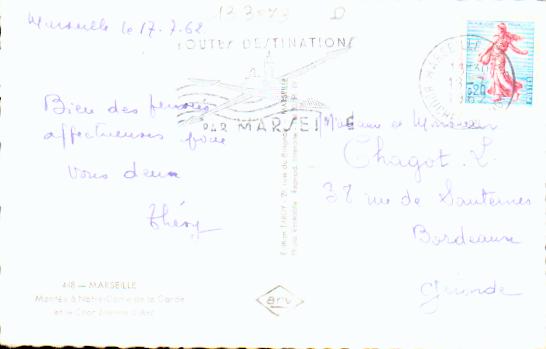 Marseille le 17.7.62
123043 D
TOUTES DESTINATIONS
PAR MARSEILLE
MARSEILLE
0,20
Bien des pensées
affectueuses pour
vous deux
Madame et Monsieur
Chagot. L.
37 rue de Sauternes
Bordeaux
Gironde
448 — MARSEILLE
Montée à Notre-Dame de la Garde
et le Char Jeanne d'Arc